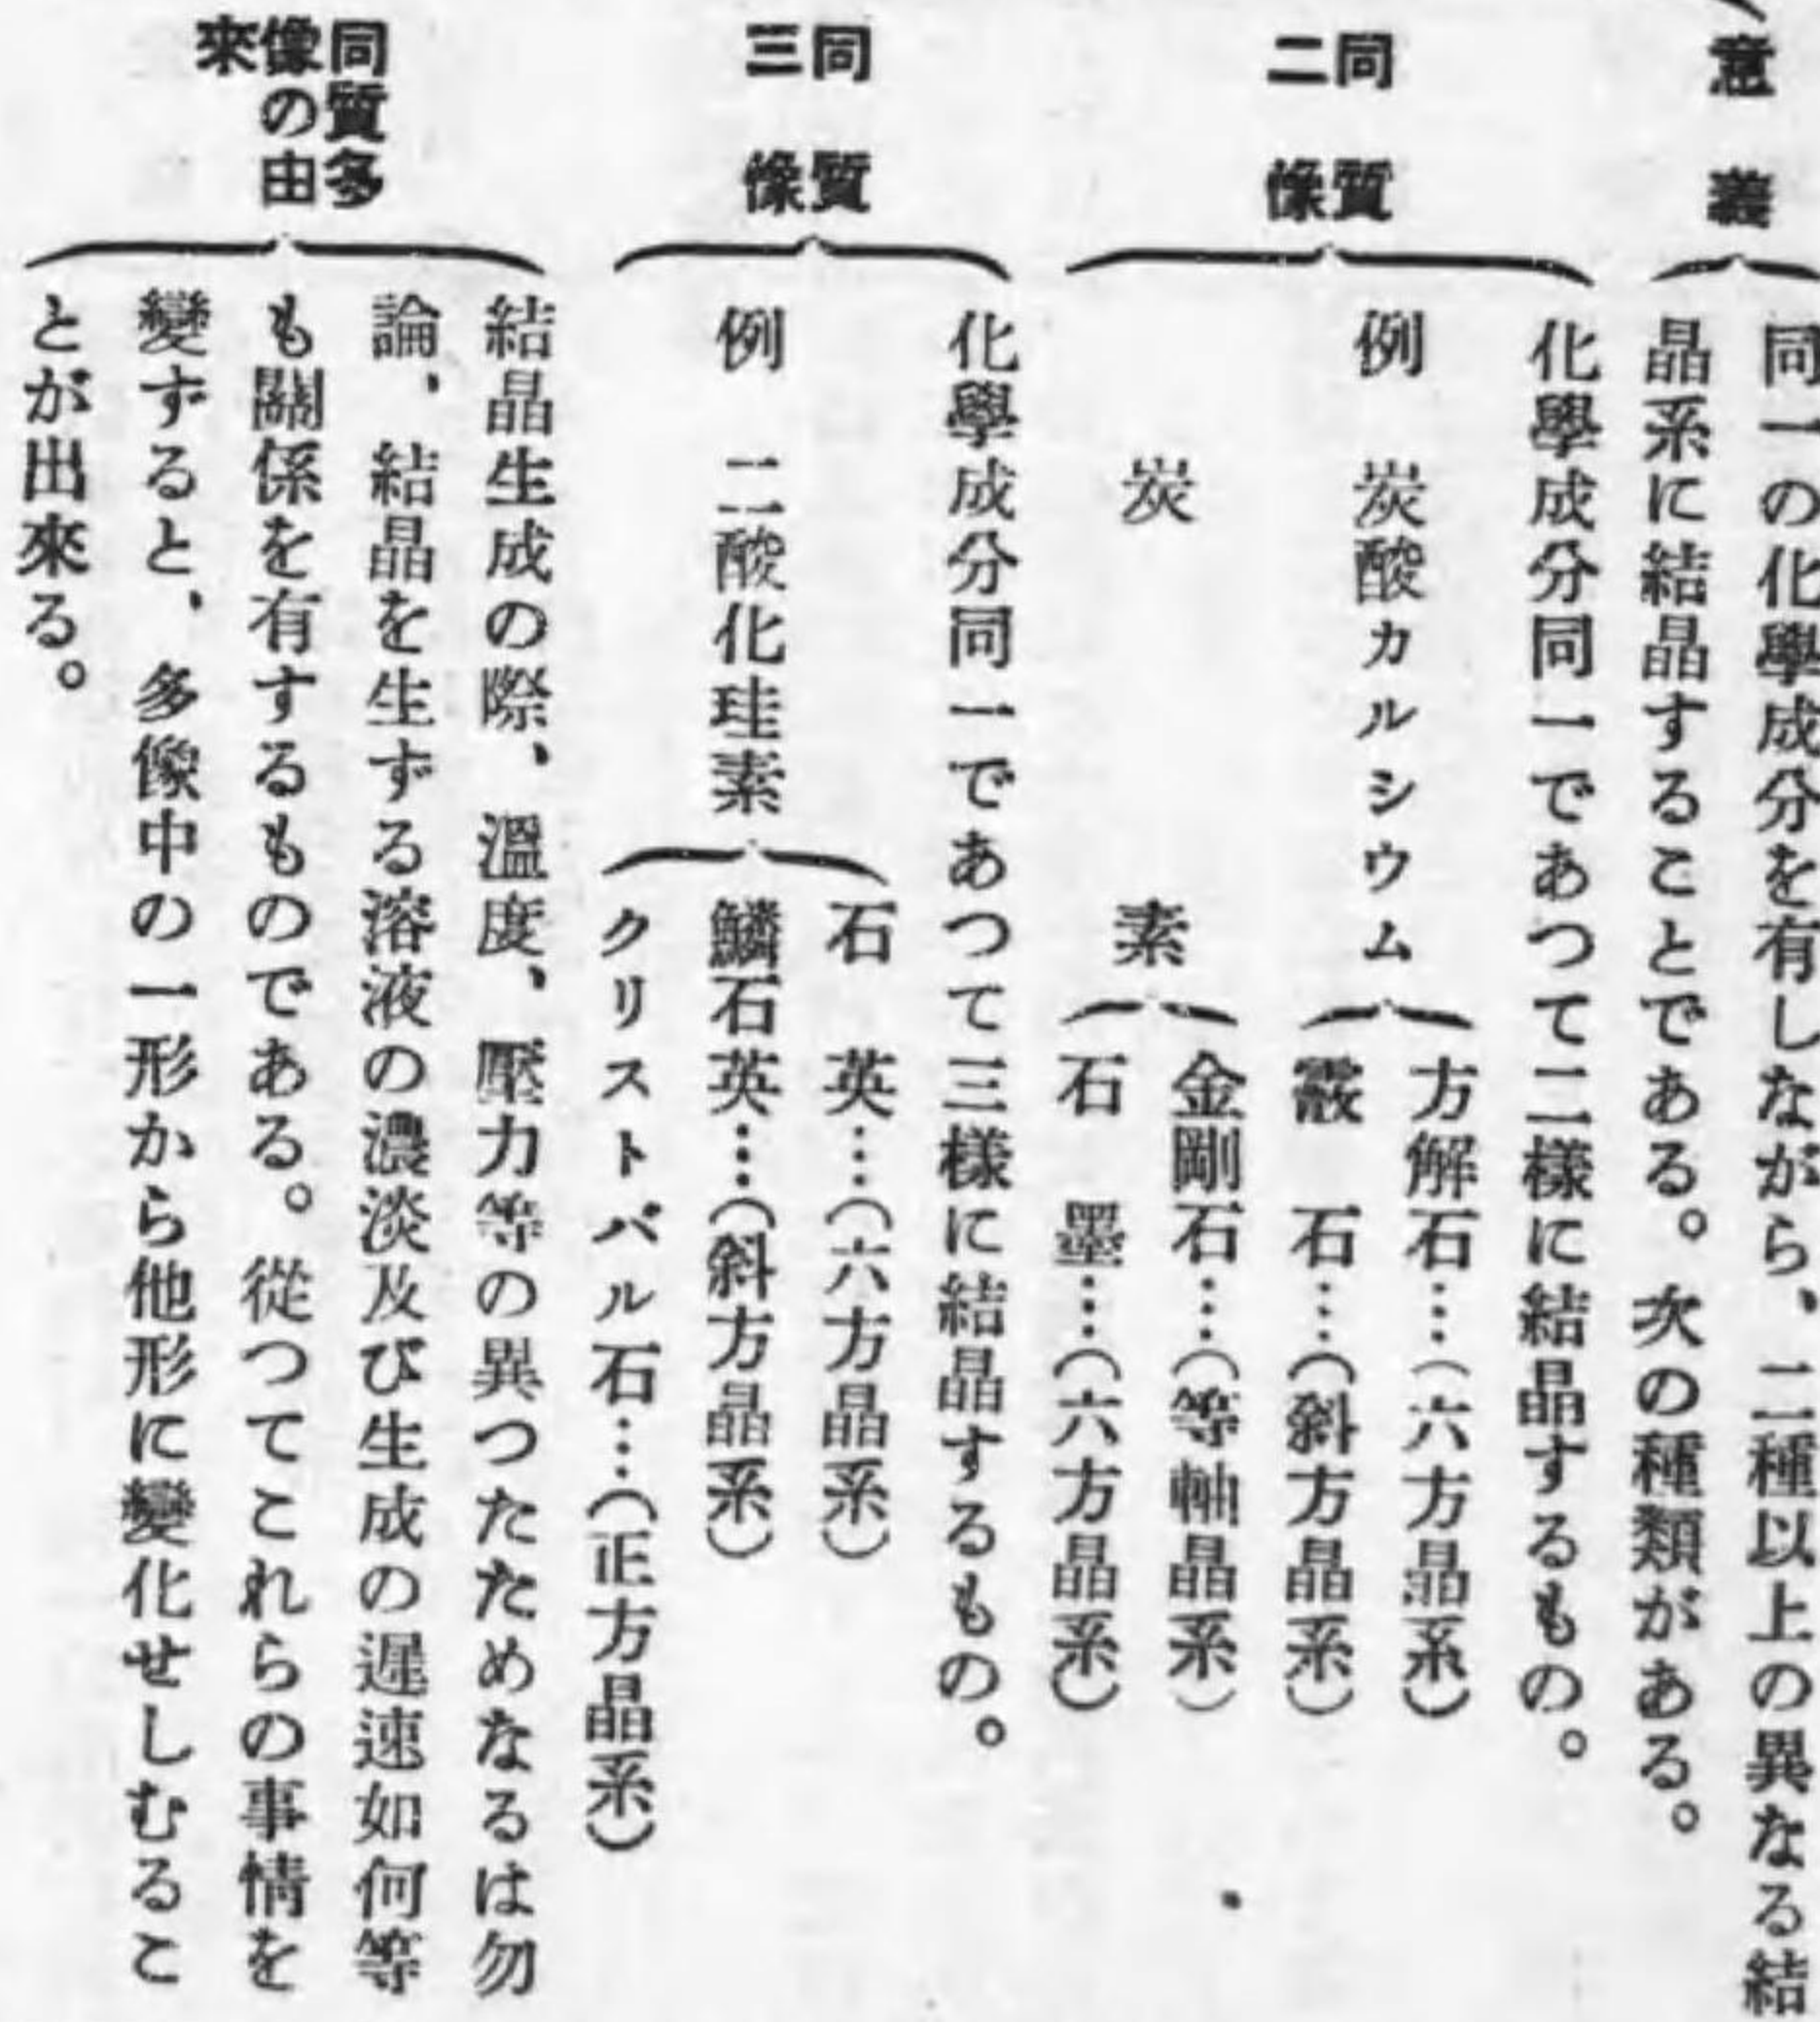 意義
同一の化學成分を有しながら、二種以上の異なる結
晶系に結晶することである。次の種類がある。
同質
二像
化學成分同一であつて二樣に結晶するもの。
例 炭酸カルシウム
方解石…(六方晶系)
霰石…(斜方晶系)
炭素
金剛石…(等軸晶系)
石墨…(六方晶系)
同質
三像
化學成分同一であつて三樣に結晶するもの。
例 二酸化珪素
石英…(六方晶系)
鱗石英…(斜方晶系)
クリストバル石…(正方晶系)
同質多
像の由
來
結晶生成の際、溫度、壓力等の異つたためなるは勿
論、結晶を生ずる溶液の濃淡及び生成の遲速如何等
も關係を有するものである。從つてこれらの事情を
變ずると、多像中の一形から他形に變化せしむるこ
とが出來る。